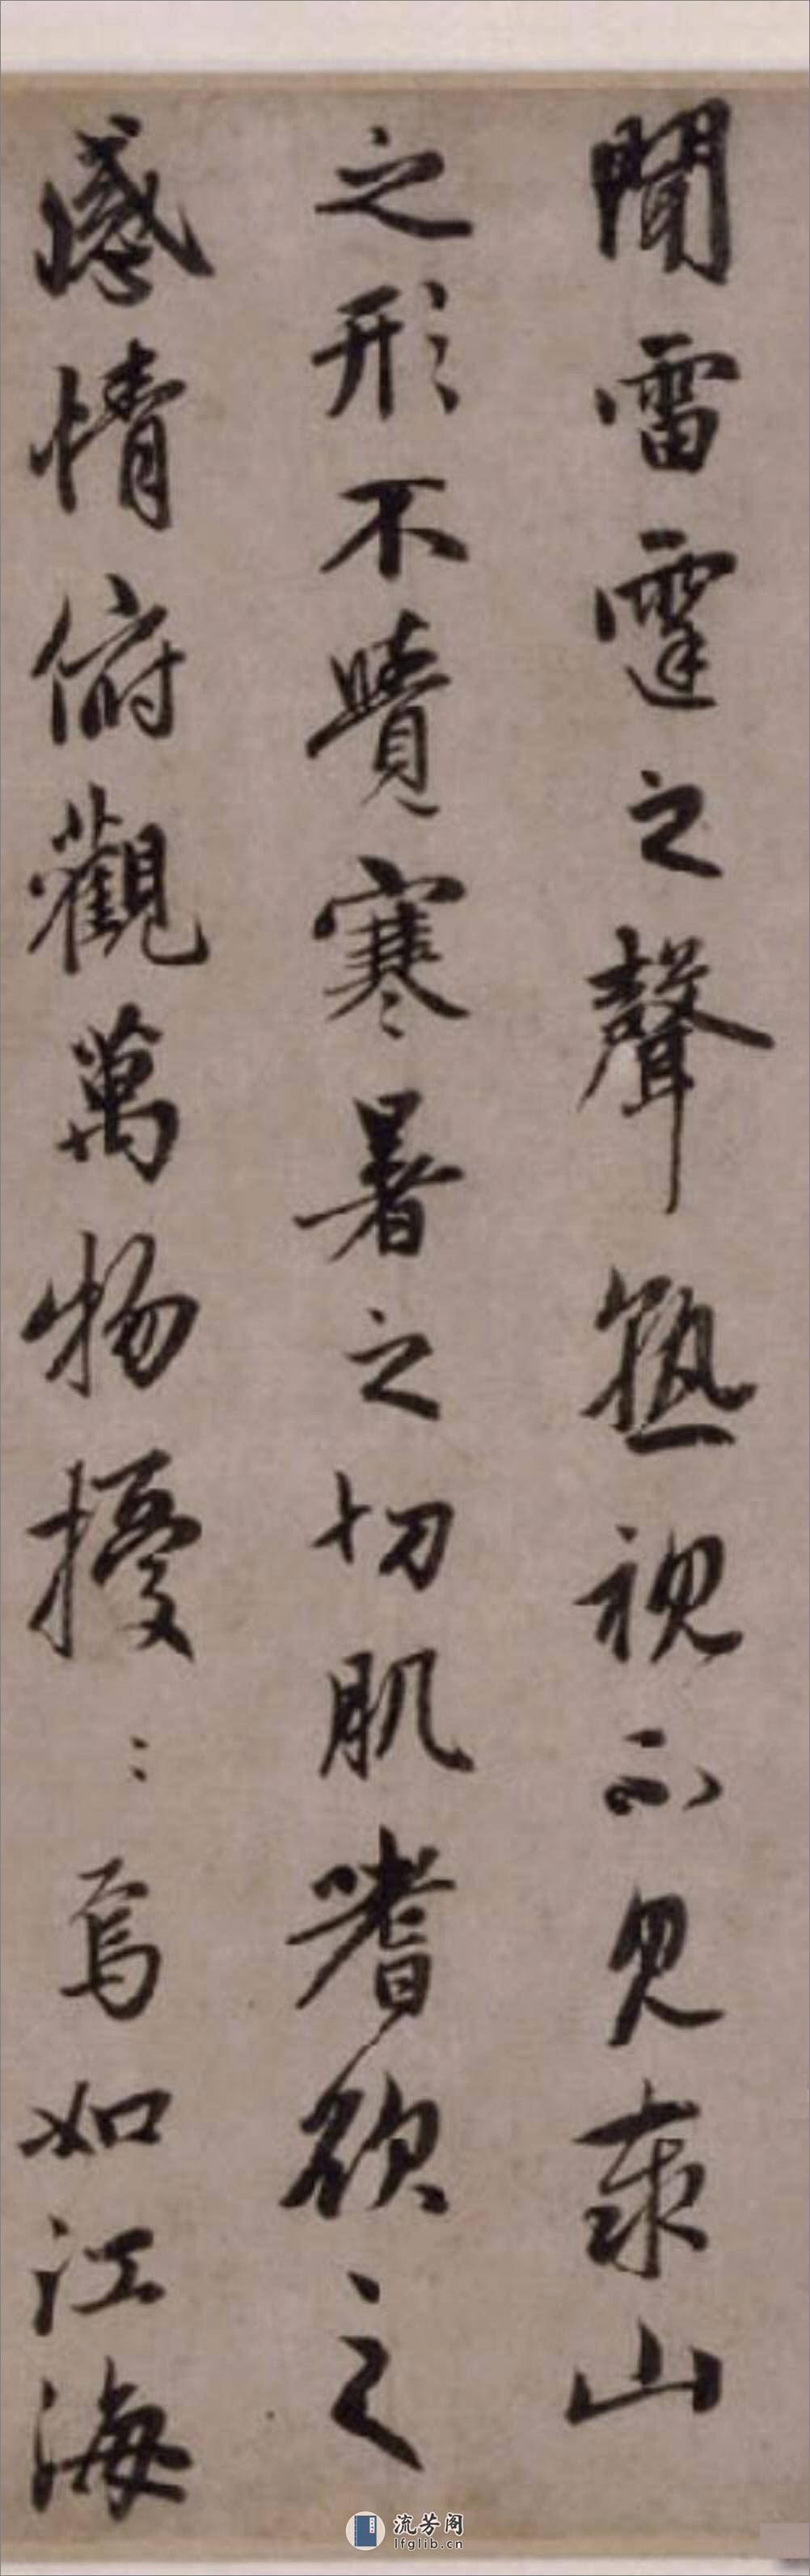 聞雷霆之聲熟視不見泰山
之形不覺寒暑之切肌嗜欲之
感情俯觀萬物擾〻焉如江海
流芳阁
lfglib.cn